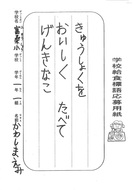 学校給食標語応募用紙
きゅうしょくを
おいしく たべて
げんきなこ
学校名
小学校
学年 一年
かわしまえみ